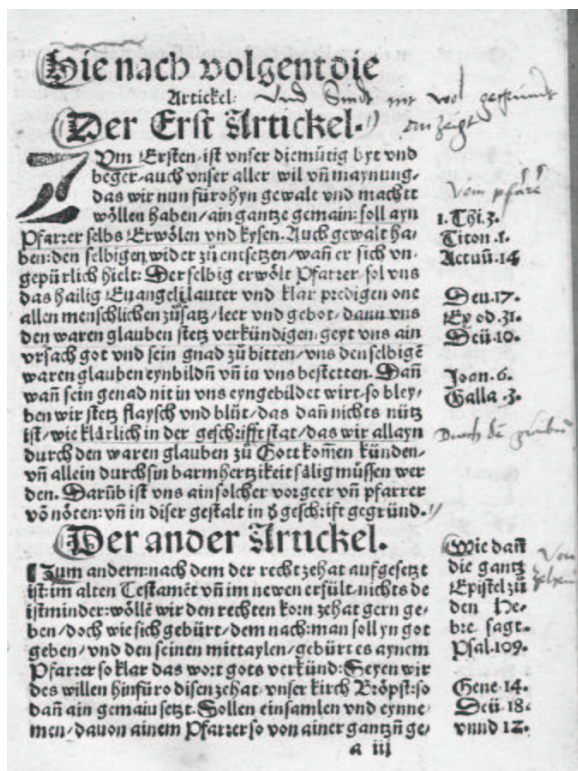 Hie nach volgent die
Artickel:
Der Erst Artickel.
ZUm Ersten ist vnser diemütig byt vnd
beger/ auch vnser aller wil vñ maynung/
das wir nun fürohyn gewalt vnd machtt
wöllen haben/ ain gantze gemain: soll ayn
Pfarrer selbs Erwölen vnd kysen. Auch gewalt ha/
ben: den selbigen wider zů entsetzen/ wañ er sich vn/
gepürlich hielt: Der selbig erwölt Pfarrer/ sol vns
das hailig Euangeli lauter vnd klar predigen one
allen menschlichen zůsatz/ leer vnd gebot/ dann vns
den waren glauben stetz verkündigen/ geyt vns ain
vrsach got vnd sein gnad zů bitten/ vns den selbigē
waren glauben eynbildñ vñ in vns bestetten. Dañ
wañ sein genad nit in vns eyngebildet wirt/ so bley/
ben wir stetz flaysch vnd blůt/ das dañ nichts nütz
ist/ wie klärlich in der geschrifft stat/ das wir allayn
durch den waren glauben zů Gott kom̄en künden/
vñ allein durch sin barmhertzikeit sälig müssen wer
den. Darūb ist vns ain solcher vorgeer vñ pfarrer
vō nöten: vñ in diser gestalt in d' geschrift gegründ.
Der ander Artickel.
Zum andern: nach dem der recht zehat aufgesetzt
ist: im alten Testamēt vñ im newen erfült/ nichts de
ist minder: wöllē wir den rechten korn zehat gern ge/
ben/ doch wie sich gebürt/ dem nach: man soll yn got
geben/ vnd den seinen mittaylen/ gebürt es aynem
Pfarrer so klar das wort gots verkünd: Seyen wir
des willen hinfüro disen zehat/ vnser kirch Bröpst: so
dañ ain gemain setzt. Sollen einsamlen vnd eynne/
men/ dauon ainem Pfarrer so von ainer gantzñ ge/
a iii
Vom pfare
1. Thi. 3.
Titon. 1.
Actuū. 14
Deu. 17.
Exod. 31.
Deū. 10.
Joan. 6.
Galla. 3.
Wie dañ
die gantz
Epistel zů
den He/
bre. sagt.
Psal. 109.
Gene. 14.
Deū. 18.
vnnd 12.